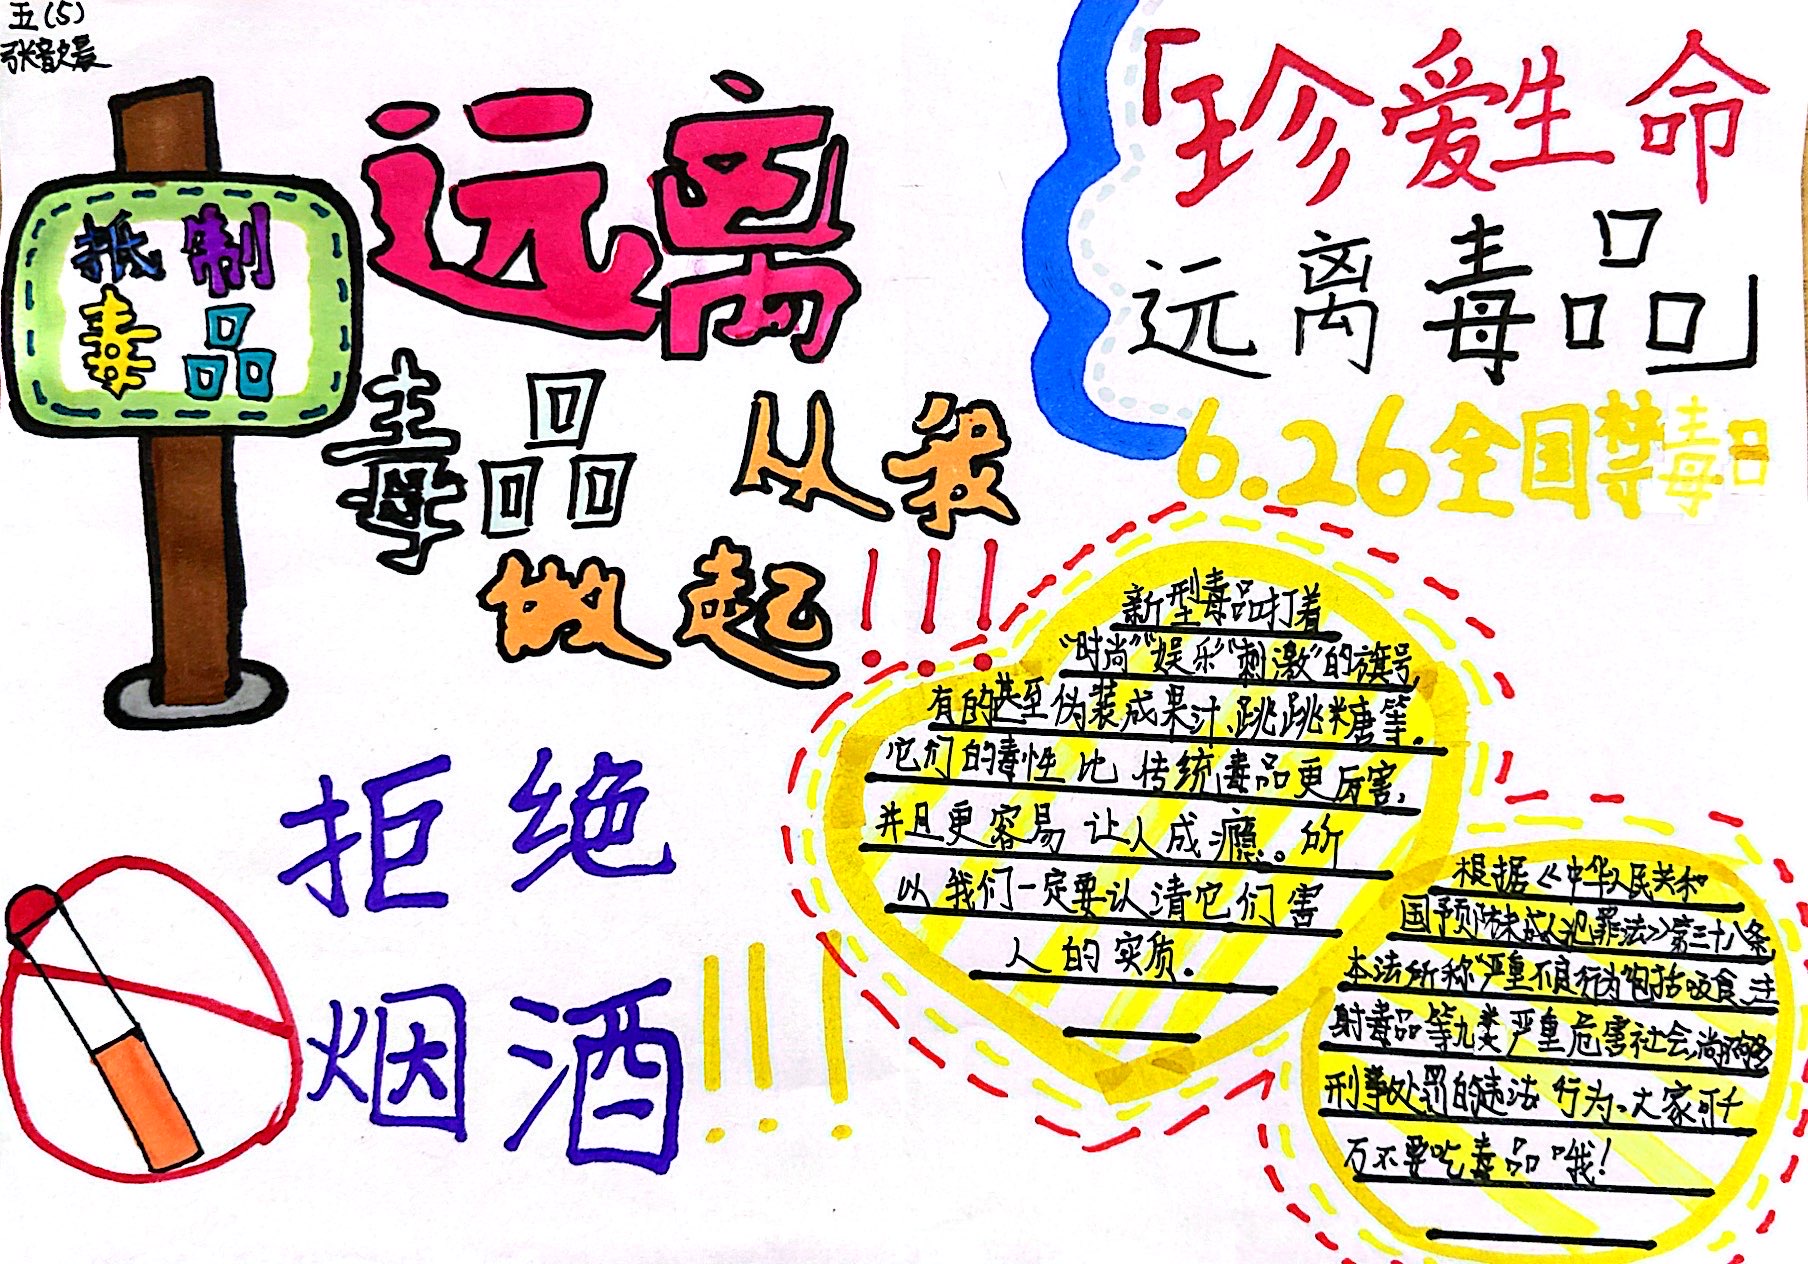 五(5)
张歆晨
抵制
毒品
远离
毒品 从我
做起!!!
「珍爱生命
远离毒品」
6.26全国禁毒日
新型毒品打着
“时尚”“娱乐”“刺激”的旗号,
有的甚至伪装成果汁、跳跳糖等。
它们的毒性比传统毒品更厉害,
并且更容易让人成瘾。所
以我们一定要认清它们害
人的实质。
拒绝
烟酒!!!
根据《中华人民共和
国预防未成人犯罪法》第三十八条,
本法所称“严重不良行为”包括吸食、注
射毒品等九类严重危害社会,尚不够
刑事处罚的违法行为。大家可千
万不要吃毒品哦!